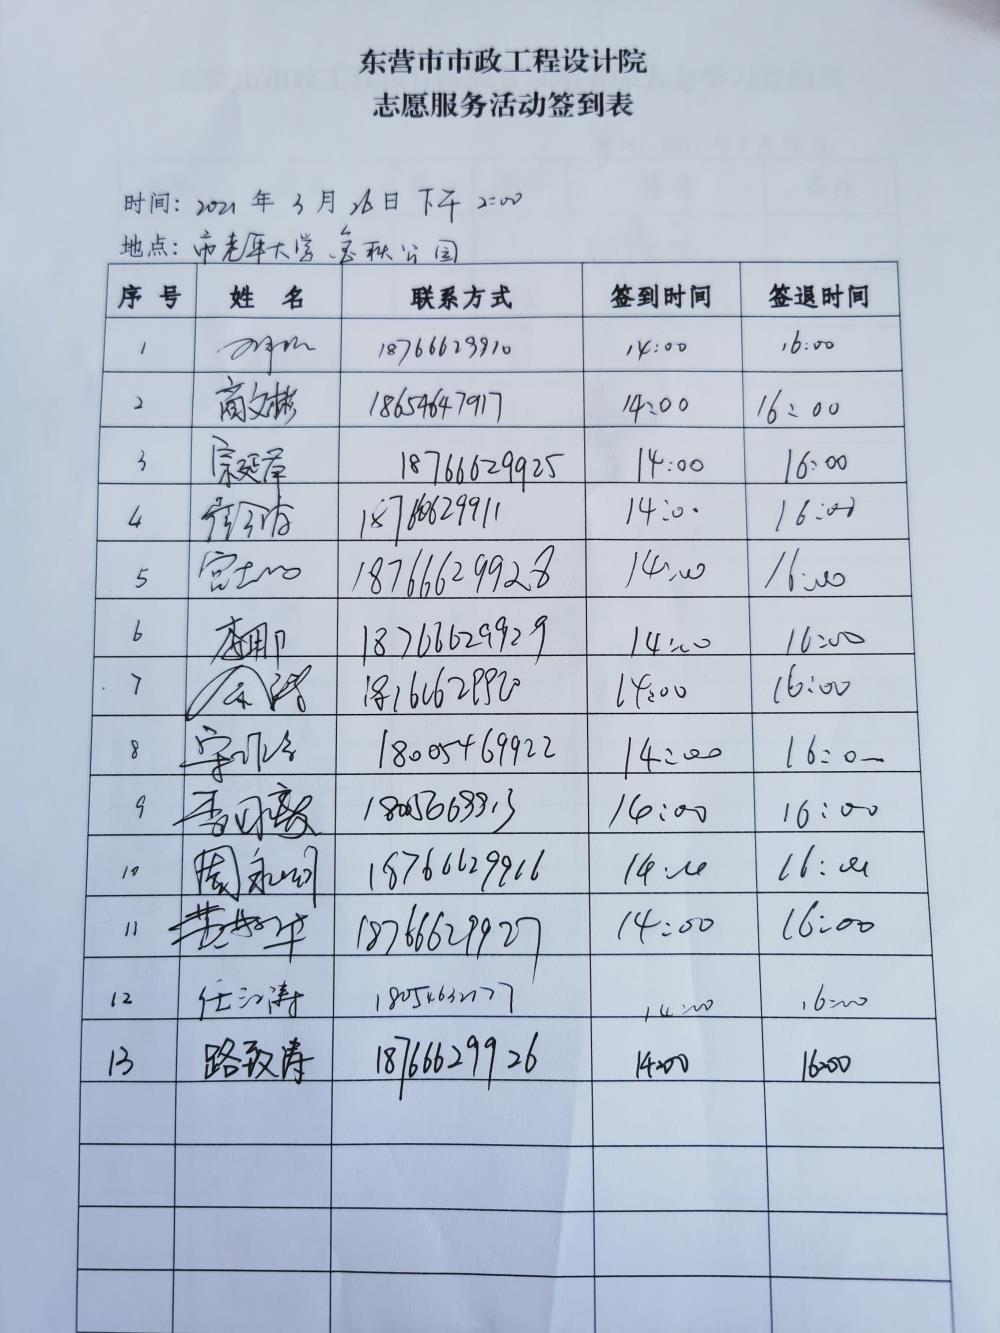 东营市市政工程设计院
志愿服务活动签到表
时间: 2021 年 3 月 26 日 下午 2:00
地点: 市老年大学 金秋公园
序 号 姓 名 联系方式 签到时间 签退时间
1 18766629910 14:00 16:00
2 商文彬 18654647917 14:00 16:00
3 宗延泽 18766629925 14:00 16:00
4 18766629911 14:00 16:00
5 18766629928 14:00 16:00
6 18766629929 14:00 16:00
7 14:00 16:00
8 18005469922 14:00 16:00
9 14:00 16:00
10 周永 18766629916 14:00 16:00
11 18766629927 14:00 16:00
12 任江涛 14:00 16:00
13 路致涛 18766629926 14:00 16:00